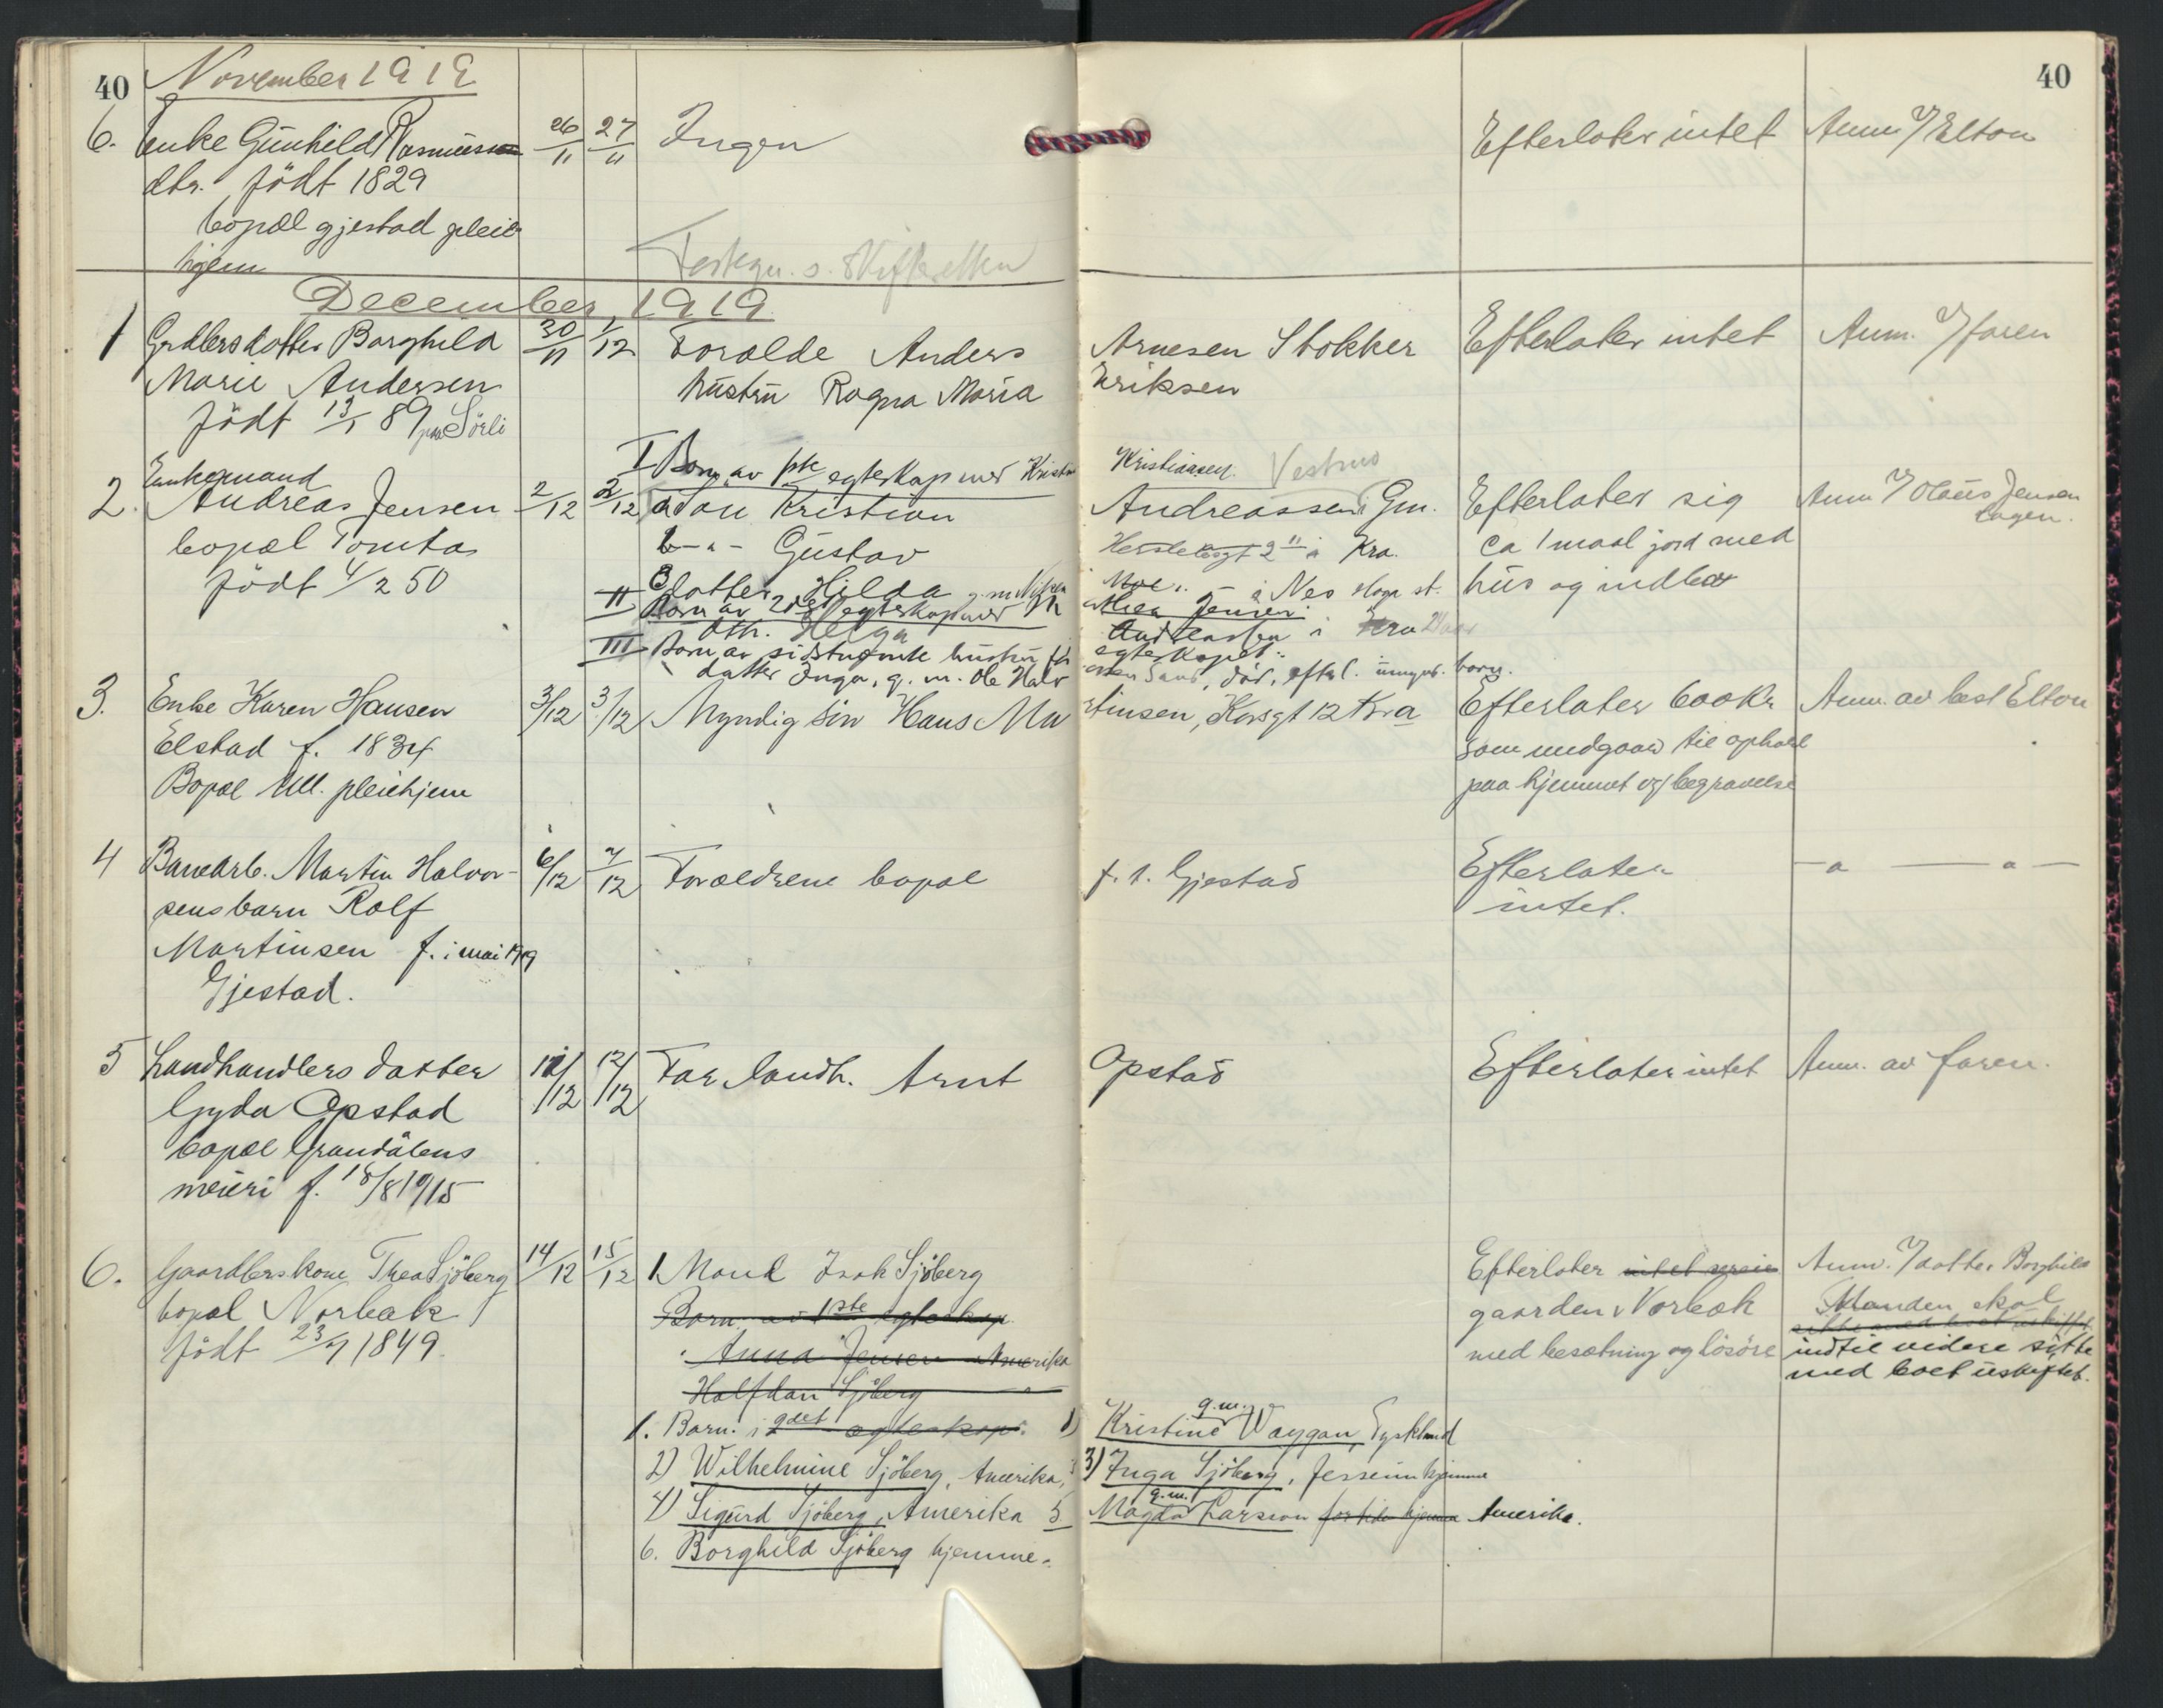 40 November 1919 40
6. Enke Günhild Rasmüssen 26/11 27/11 Ingen Efterlater intet Anm. v/ Elton
dtr. födt 1829
bopæl gjestad pleie
hjem
Fortegn. s. Skifteretten
December, 1919.
1 Grdbrsdatter Borghild 30/11 1/12 Forælde Anders Arnesen Stokker Efterlater intet Anm. v/ faren
Marie Andersen hüstrü Ragna Maria Eriksen
födt 13/1 89 paa Sörli
I Barn av 1ste egteskap med Kristine Kristiansen Vestmo
Enkemand
2. Andreas Jensen 2/12 2/12 a Søn Kristian Andreassen i Gm. Efterlater sig Anm v/ Olaüs Jensen
bopæl Tomta b -"- Güstav 2 II i Kra. ca 1 maal jord med
födt 4/2 50 Datter Hilda i Nes st. hüs og indbo
II Barn av 2det egteskap med Jensen
Dtr. Helga Andreassen i Kra
III Barn av sidstnævnte hüstrü før egteskapet:
datter Inga, g. m. Ole Halv Sand, död, efterl. ümynd. barn.
3. Enke Karen Hansen 3/12 3/12 Myndig sön Hans Martinsen, Korsgt 12 Kra Efterlater 600 Kr Anm. av best Elton
Elstad f. 1834 som medgaar til ophold
Bopæl Ull. pleiehjem paa hjemmet og begravelse
4 Banearb. Martin Halvor- 6/12 7/12 Forældrene bopæl f. t. Gjestad Efterlater -"- -"-
sens barn Rolf intet.
Martinsen f. i mai 1919
Gjestad.
5 Landhandlers datter 12/12 12/12 Far landh. Arnt Opstad Efterlater intet Anm. av faren.
Gyda Opstad
bopæl Grøndalens
meieri f. 18/8 1915
6. Gaardbrskone Thea Sjöberg 14/12 15/12 1 Mand Isak Sjöberg Efterlater intet Anm. v/ datter Borghild
bopæl Norbæk Barn av 1ste egteskap gaarden Norbæk Manden skal
födt 23/7 1849. Anna Jensen Amerika med besætning og lösöre indtil videre sitte
Halfdan Sjöberg -"- med boet üskiftet.
1. Barn. i 2det egteskap: 1) Kristine g.m. Waygan, Tyskland
2) Wilhelmine Sjöberg, Amerika, 3) Inga Sjöberg, Jessheim hjemme
4) Sigürd Sjöberg, Amerika 5 Magda g.m. Larsson for tiden hjemme Amerika.
6. Borghild Sjöberg hjemme.